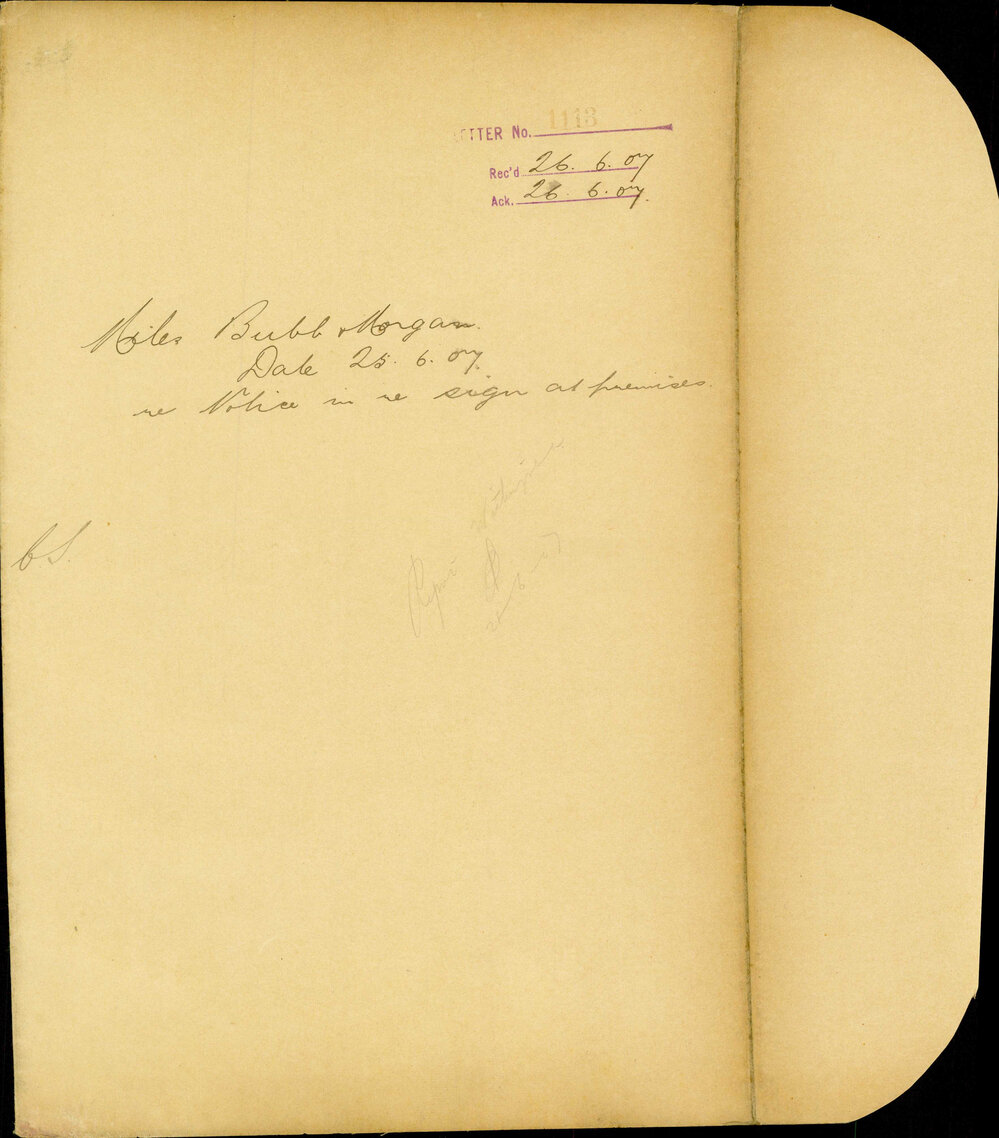 LETTER No. 1113
Rec'd 26. 6. 07
Ack. 26. 6. 07.
Miles Bubb & Morgan.
Date 25. 6. 07.
re Notice in re sign at premises.
C.S.